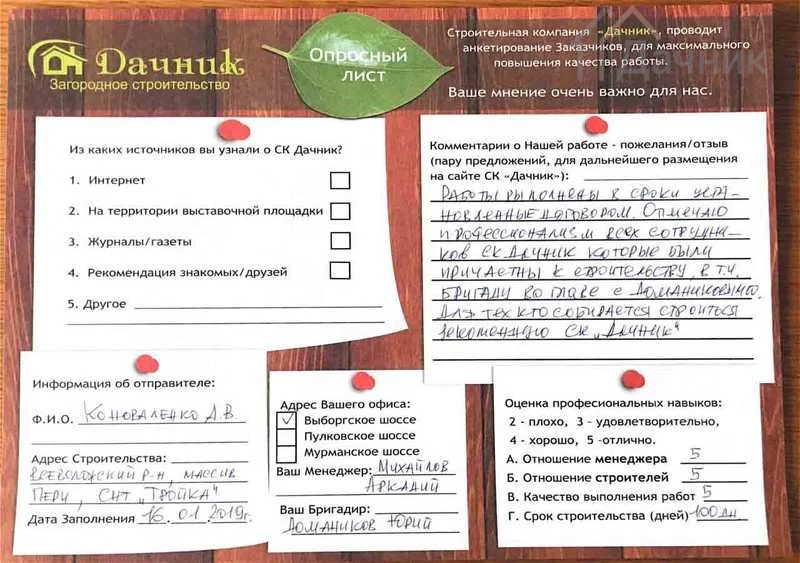 Дачник
Загородное строительство
Опросный
лист
Строительная компания «Дачник», проводит
анкетирование Заказчиков, для максимального
повышения качества работы.
Дачник
Ваше мнение очень важно для нас.
Из каких источников вы узнали о СК Дачник?
1. Интернет
2. На территории выставочной площадки
3. Журналы/газеты
4. Рекомендация знакомых/друзей
5. Другое
Комментарии о Нашей работе - пожелания/отзыв
(пару предложений, для дальнейшего размещения
на сайте СК «Дачник»):
Работы выполнены в сроки уста-
новленные договором. Отмечаю
профессионализм всех сотрудни-
ков СК Дачник которые были
причастны к строительству, в т.ч.
бригаду во главе с Доманиковым.
Для тех кто собирается строиться
рекомендую СК „Дачник"
Информация об отправителе:
Ф.И.О. Коноваленко А.В.
Адрес Строительства:
Всеволожский р-н, массив
Пери, СНТ „Тройка"
Дата Заполнения 16.01.2019г.
Адрес Вашего офиса:
Выборгское шоссе
Пулковское шоссе
Мурманское шоссе
Ваш Менеджер: Михайлов
Аркадий
Ваш Бригадир:
Домаников Юрий
Оценка професиональных навыков:
2 - плохо, 3 - удовлетворительно,
4 - хорошо, 5 -отлично.
А. Отношение менеджера 5
Б. Отношение строителей 5
В. Качество выполнения работ 5
Г. Срок строительства (дней) 100 дн